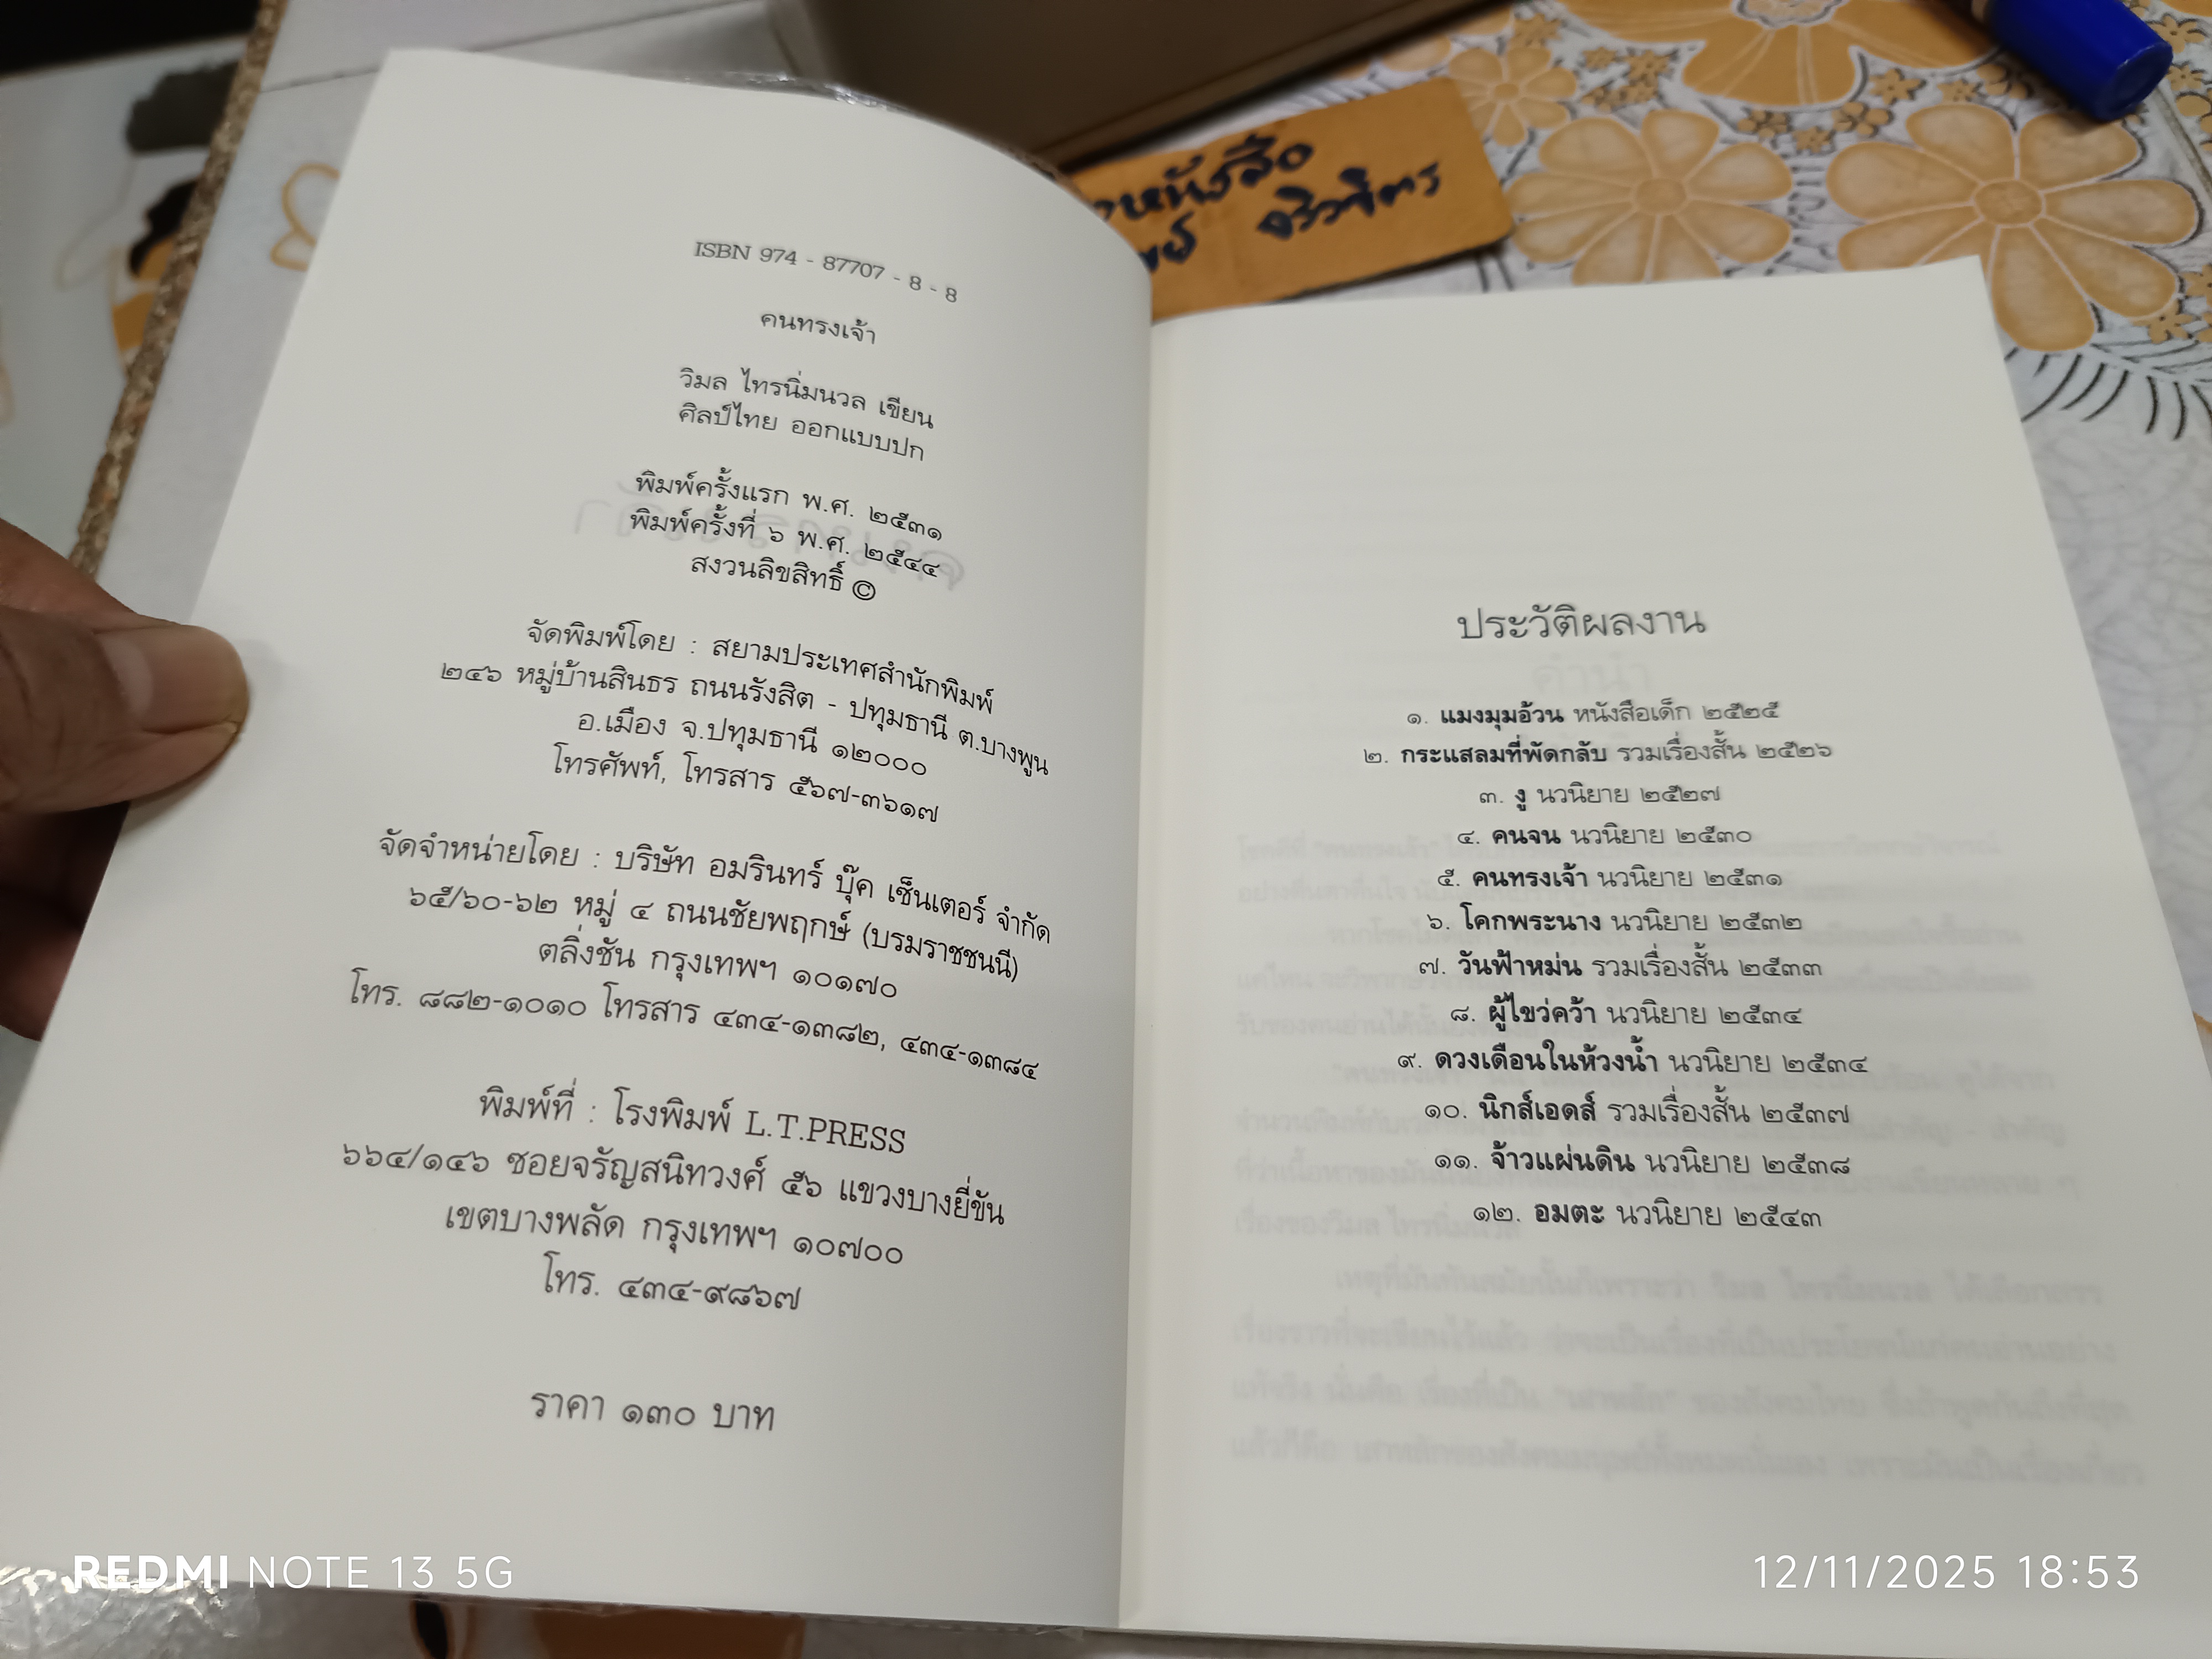 ISBN 974 - 87707 - 8 - 8
คนทรงเจ้า
วิมล ไทรนิ่มนวล เขียน
ศิลป์ไทย ออกแบบปก
พิมพ์ครั้งแรก พ.ศ. ๒๕๓๑
พิมพ์ครั้งที่ ๖ พ.ศ. ๒๕๔๔
สงวนลิขสิทธิ์ ©
จัดพิมพ์โดย : สยามประเทศสำนักพิมพ์
๒๔๖ หมู่บ้านสินธร ถนนรังสิต - ปทุมธานี ต.บางพูน
อ.เมือง จ.ปทุมธานี ๑๒๐๐๐
โทรศัพท์, โทรสาร ๕๖๗-๓๖๑๗
จัดจำหน่ายโดย : บริษัท อมรินทร์ บุ๊ค เซ็นเตอร์ จำกัด
๖๕/๖๐-๖๒ หมู่ ๔ ถนนชัยพฤกษ์ (บรมราชชนนี)
ตลิ่งชัน กรุงเทพฯ ๑๐๑๗๐
โทร. ๘๘๒-๑๐๑๐ โทรสาร ๔๓๔-๑๓๘๒, ๔๓๔-๑๓๘๔
พิมพ์ที่ : โรงพิมพ์ L.T.PRESS
๖๖๔/๑๔๖ ซอยจรัญสนิทวงศ์ ๕๖ แขวงบางยี่ขัน
เขตบางพลัด กรุงเทพฯ ๑๐๗๐๐
โทร. ๔๓๔-๙๘๖๗
ราคา ๑๓๐ บาท
ประวัติผลงาน
๑. แมงมุมอ้วน หนังสือเด็ก ๒๕๒๕
๒. กระแสลมที่พัดกลับ รวมเรื่องสั้น ๒๕๒๖
๓. งู นวนิยาย ๒๕๒๗
๔. คนจน นวนิยาย ๒๕๓๐
๕. คนทรงเจ้า นวนิยาย ๒๕๓๑
๖. โคกพระนาง นวนิยาย ๒๕๓๒
๗. วันฟ้าหม่น รวมเรื่องสั้น ๒๕๓๓
๘. ผู้ไขว่คว้า นวนิยาย ๒๕๓๔
๙. ดวงเดือนในห้วงน้ำ นวนิยาย ๒๕๓๔
๑๐. นิกส์เอดส์ รวมเรื่องสั้น ๒๕๓๗
๑๑. จ้าวแผ่นดิน นวนิยาย ๒๕๓๘
๑๒. อมตะ นวนิยาย ๒๕๔๓
REDMI NOTE 13 5G
12/11/2025 18:53